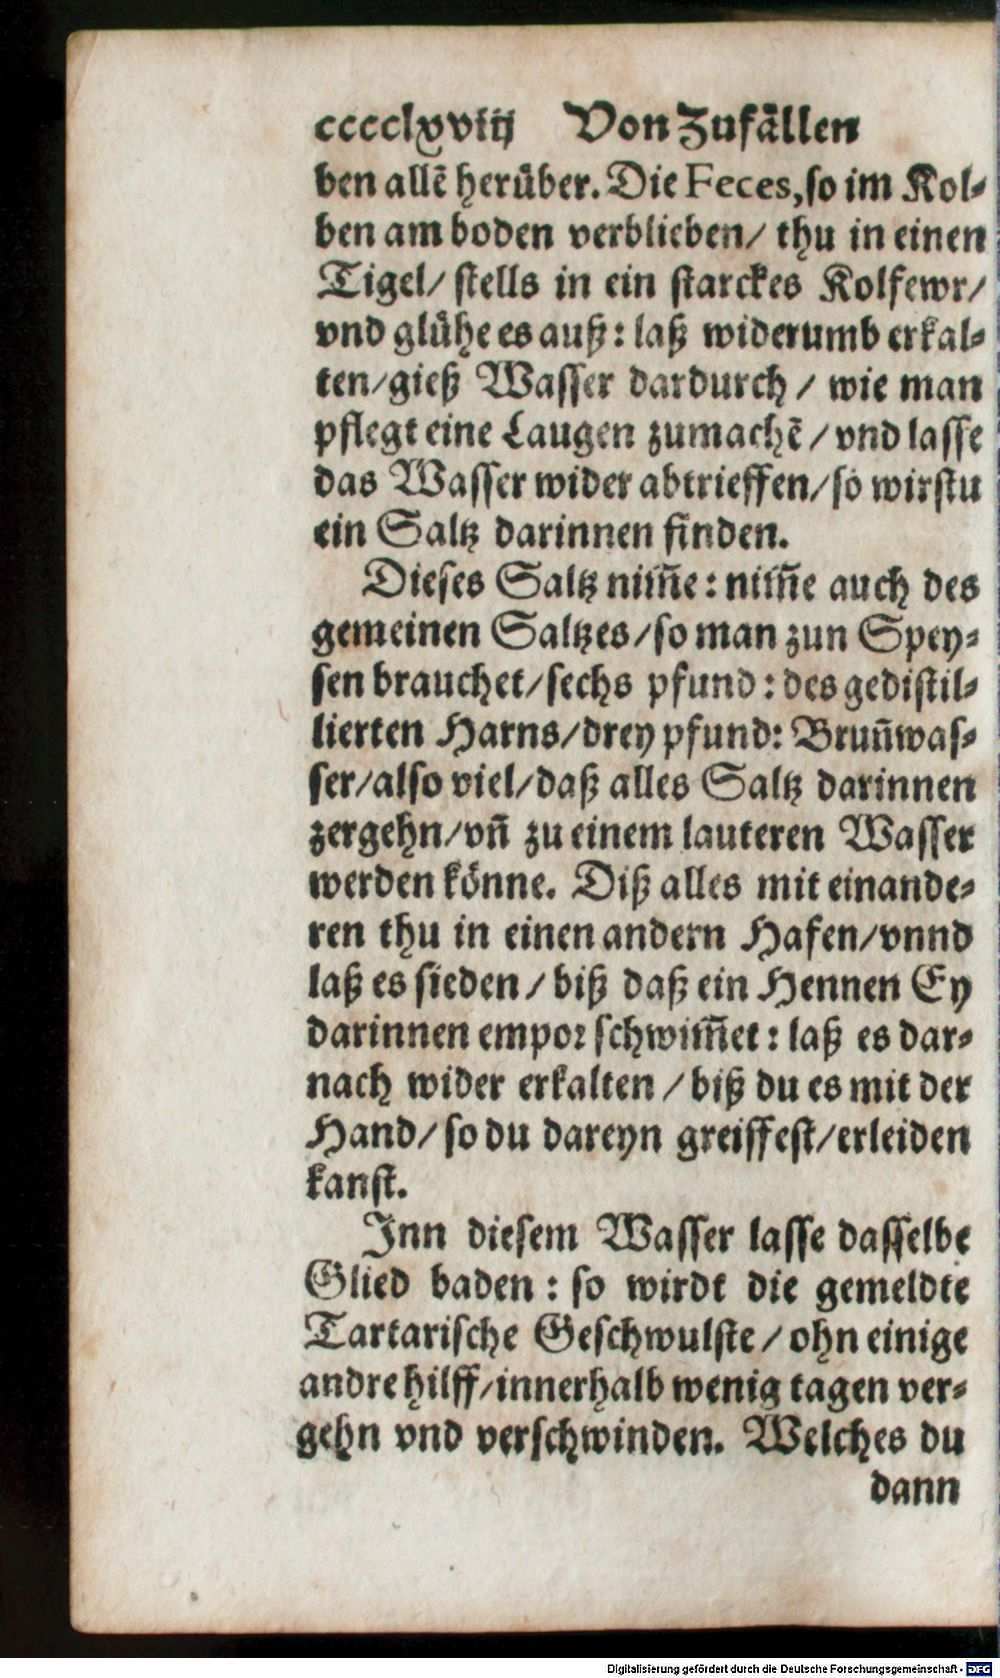 cccclxviij Von Zufällen
ben allē herüber. Die Feces, so im Kol-
ben am boden verblieben/ thu in einen
Tigel/ stells in ein starckes Kolfewr/
vnd glühe es auß: laß widerumb erkal-
ten/ gieß Wasser dardurch/ wie man
pflegt eine Laugen zumachē/ vnd lasse
das Wasser wider abtrieffen/ so wirstu
ein Saltz darinnen finden.
Dieses Saltz nim̄e: nim̄e auch des
gemeinen Saltzes/ so man zun Spey-
sen brauchet/ sechs pfund: des gedistil-
lierten Harns/ drey pfund: Brun̄was-
ser/ also viel/ daß alles Saltz darinnen
zergehn/ vn̄ zu einem lauteren Wasser
werden könne. Diß alles mit einande-
ren thu in einen andern Hafen/ vnnd
laß es sieden/ biß daß ein Hennen Ey
darinnen empor schwim̄et: laß es dar-
nach wider erkalten/ biß du es mit der
Hand/ so du dareyn greiffest/ erleiden
kanst.
Inn diesem Wasser lasse dasselbe
Glied baden: so wirdt die gemeldte
Tartarische Geschwulste/ ohn einige
andre hilff/ innerhalb wenig tagen ver-
gehn vnd verschwinden. Welches du
dann
Digitalisierung gefördert durch die Deutsche Forschungsgemeinschaft - DFG